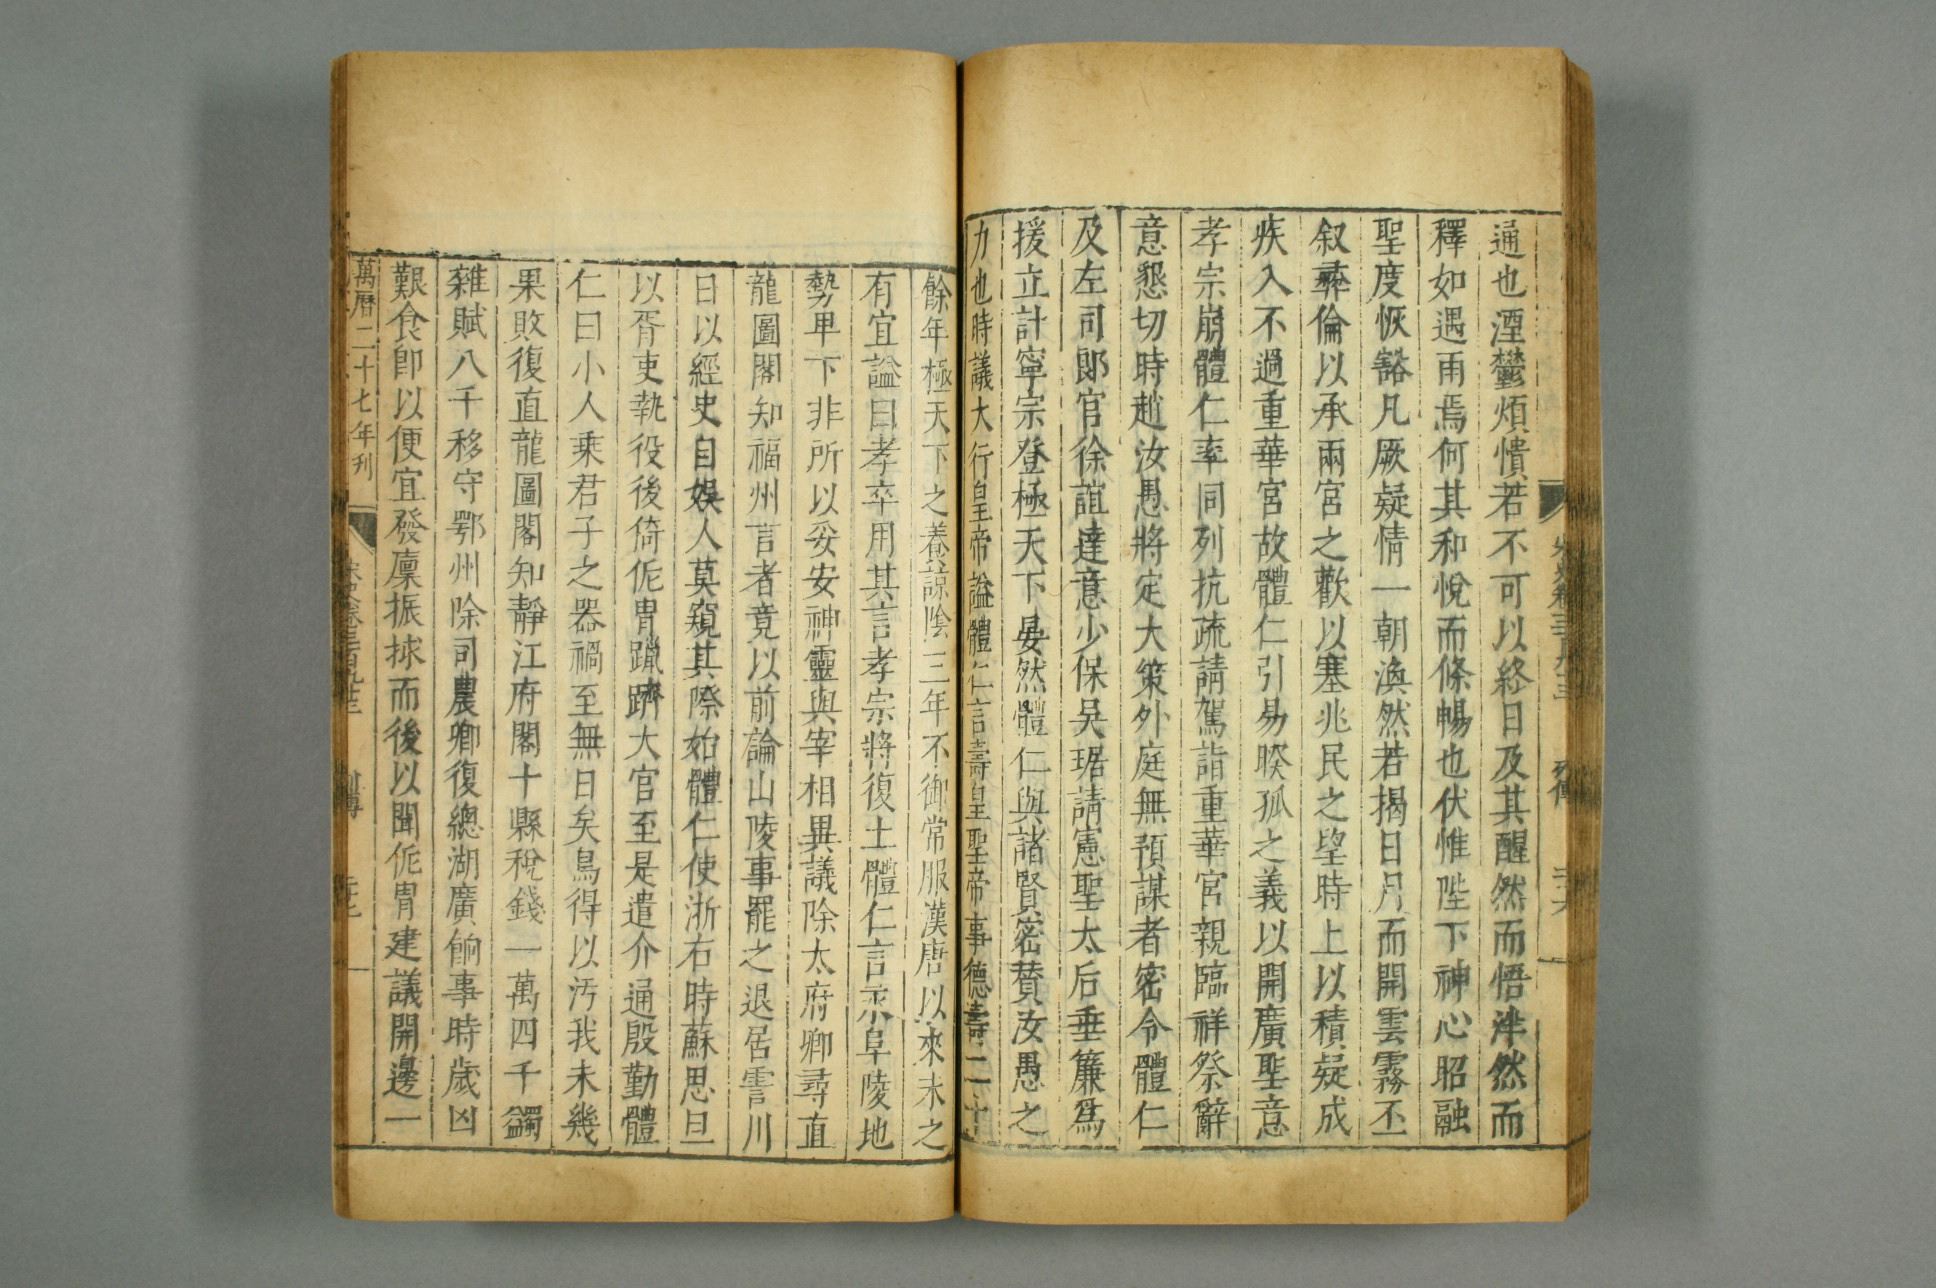 通也湮鬱煩憒若不可以終日及其醒然而悟泮然而
釋如遇雨焉何其和悅而條暢也伏惟陛下神心昭融
聖度恢豁凡厥疑情一朝渙然若揭日月而開雲霧丕
叙彝倫以承兩宮之歡以塞兆民之望時上以積疑成
疾入不過重華宮故體仁引易睽孤之義以開廣聖意
孝宗崩體仁率同列抗疏請駕詣重華宮親臨祥祭辭
意懇切時趙汝愚將定大策外庭無預謀者密令體仁
及左司郞官徐誼達意少保吳琚請憲聖太后垂簾爲
援立計寧宗登極天下晏然體仁與諸賢密賛汝愚之
力也時議大行皇帝謚體仁言壽皇聖帝事德壽二十
餘年極天下之養諒陰三年不御常服漢唐以來未之
有宜謚曰孝卒用其言孝宗將復土體仁言永阜陵地
勢卑下非所以妥安神靈與宰相異議除太府卿尋直
龍圖閣知福州言者竟以前論山陵事罷之退居霅川
日以經史自娛人莫窺其際始體仁使浙右時蘇思旦
以胥吏執役後倚侂胄躐躋大官至是遣介通殷勤體
仁曰小人乘君子之器禍至無日矣烏得以汚我未幾
果敗復直龍圖閣知靜江府閣十縣稅錢一萬四千蠲
雜賦八千移守鄂州除司農卿復總湖廣餉事時歲凶
艱食卽以便宜發廩振捄而後以聞侂胄建議開邊一
萬曆二十七年刊
宋史卷三百九十三
列傳